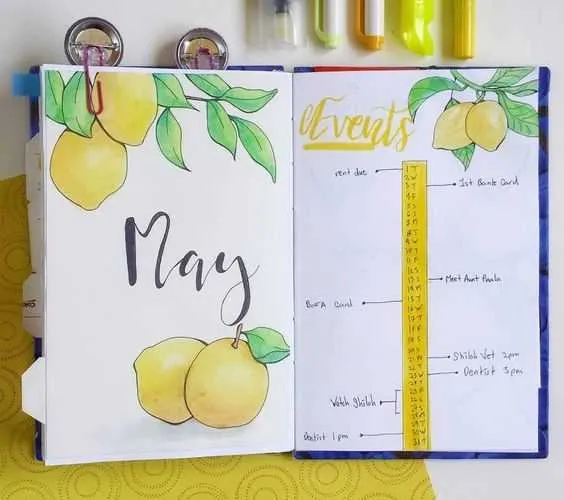 May
Events
rent due
1st Bank Card
Meet Aunt Paula
BofA Card
Shiloh Vet 2pm
Dentist 3pm
Watch Shiloh
Dentist 1pm
1 T
2 W
3 T
4 F
5 S
6 S
7 M
8 T
9 W
10 T
11 F
12 S
13 S
14 M
15 T
16 W
17 T
18 F
19 S
20 S
21 M
22 T
23 W
24 T
25 F
26 S
27 S
28 M
29 T
30 W
31 T